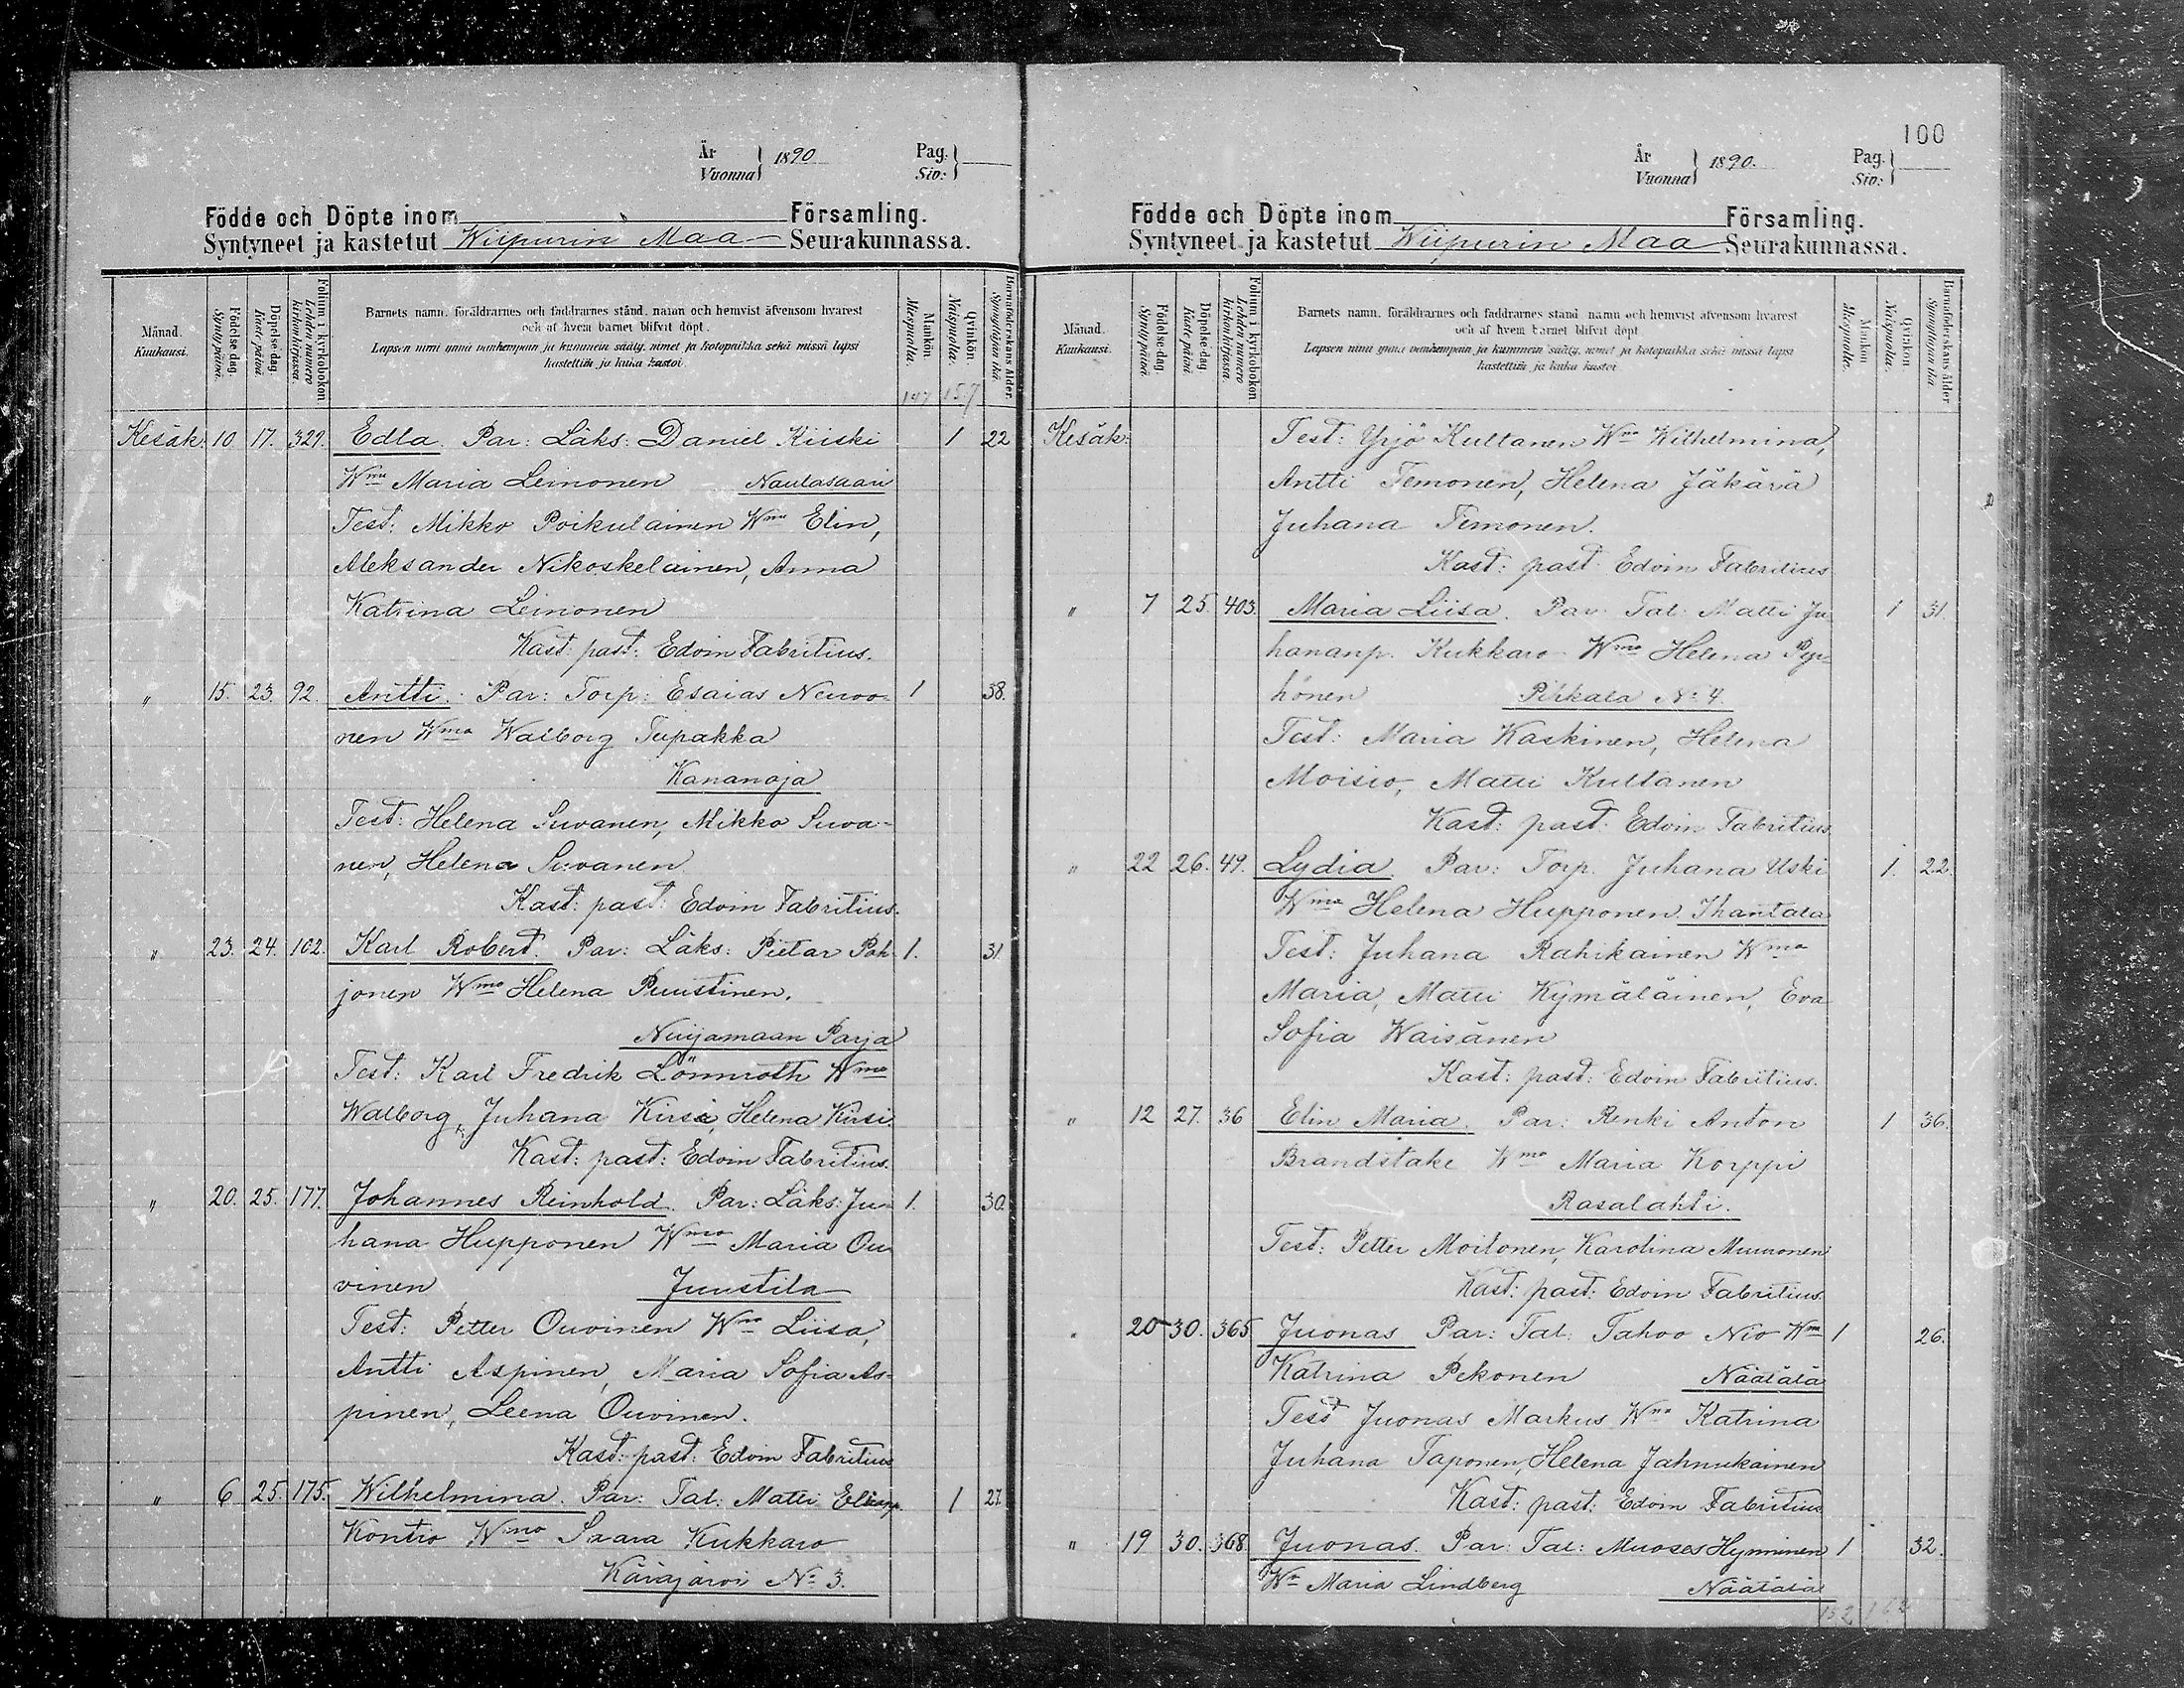 År
Vuonna } 1890
Pag.
Siv: }
Födde och Döpte inom Församling.
Syntyneet ja kastetut Wiipurin Maa Seurakunnassa.
Månad.
Kuukausi.
Födelse-dag.
Synty-päivä.
Döpelse-dag.
Kaste-päivä.
Folium i kyrkoboken.
Lehden numero kirkonkirjassa.
Barnets namn, föräldrarnes och faddrarnes stånd, namn och hemvist äfvensom hvarest
och af hvem barnet blifvit döpt.
Lapsen nimi ynnä vanhempain ja kummein sääty, nimet ja kotopaikka sekä missä lapsi
kastettiin ja kuka kastoi.
Mankön.
Miespuolta.
Qvinkön.
Naispuolta.
Barnaföderskans Ålder.
Synnyttäjän ikä.
147 157
Kesäk. 10 17. 329. Edla. Par: Läks: Daniel Kiiski 1 22
Wmo Maria Leinonen Naulasaari
Test: Mikko Poikulainen Wmo Elin,
Aleksander Nikoskelainen, Anna
Katrina Leinonen
Kast: past: Edvin Fabritius.
" 15. 23. 92. Antti. Par: Torp: Esaias Neuvo- 1 38.
nen Wmo Walborg Tupakka
Kananoja
Test: Helena Suvanen, Mikko Suva-
nen, Helena Suvanen
Kast: past: Edvin Fabritius.
" 23. 24. 102. Karl Robert. Par: Läks: Pietar Poh- 1. 31
jonen Wmo Helena Puustinen.
Nuijamaan Parja
Test: Karl Fredrik Lönnroth Wmo
Walborg, Juhana Kirsi, Helena Kirsi
Kast: past: Edvin Fabritius.
" 20. 25. 177. Johannes Reinhold. Par: Läks: Ju- 1. 30.
hana Hupponen Wmo Maria Ou-
vinen Juustila
Test: Petter Ouvinen Wmo Liisa,
Antti Aspinen, Maria Sofia As-
pinen, Leena Ouvinen.
Kast: past: Edvin Fabritius
" 6 25. 175. Wilhelmina. Par: Tal: Matti 1 27.
Kontio Wmo Saara Kukkaro
Käräjärvi No 3.
100
År
Vuonna } 1890.
Pag.
Siv: }
Födde och Döpte inom Församling.
Syntyneet ja kastetut Wiipurin Maa Seurakunnassa.
Månad.
Kuukausi.
Födelse-dag.
Synty-päivä.
Döpelse-dag.
Kast-päivä.
Folium i kyrkoboken.
Lehden numero kirkonkirjassa.
Barnets namn, föräldrarnes och faddrarnes stånd namn och hemvist äfvensom hvarest
och af hvem barnet blifvit döpt.
Lapsen nimi ynnä vanhempain ja kummein sääty, nimet ja kotopaikka sekä missä lapsi
kastettiin ja kuka kastoi.
Mankön.
Miespuolta.
Qvinkön.
Naispuolta.
Barnaföderskans ålder
Synnyttäjän ikä
Kesäk: Test: Yrjö Kultanen Wmo Wilhelmina,
Antti Temonen, Helena Jäkärä
Juhana Temonen.
Kast: past: Edvin Fabritius
" 7 25. 403. Maria Liisa. Par: Tal: Matti Ju- 1 31.
hananp. Kukkaro Wmo Helena Pyy-
hönen Pihkala No 4.
Test: Maria Kaskinen, Helena
Moisio, Matti Kultanen
Kast: past: Edvin Fabritius
" 22 26. 49. Lydia. Par: Torp. Juhana Uski 1. 22.
Wmo Helena Hupponen Ihantala
Test: Juhana Rahikainen Wmo
Maria, Matti Kymäläinen, Eva
Sofia Waisänen
Kast: past: Edvin Fabritius.
" 12 27. 36 Elin Maria. Par: Renki Anton 1 36.
Brandstake Wmo Maria Korppi
Rasalahti.
Test: Petter Moilonen, Karolina Muuronen
Kast: past: Edvin Fabritius.
" 20 30. 365 Juonas Par: Tal: Tahvo Nio Wmo 1 26.
Katrina Pekonen Näätälä
Test Juonas Markus Wmo Katrina
Juhana Taponen, Helena Jahnukainen
Kast: past: Edvin Fabritius
" 19 30. 368. Juonas. Par: Tal: Muoses Hyminen 1 32.
Wo Maria Lindberg Näätälä
152 162